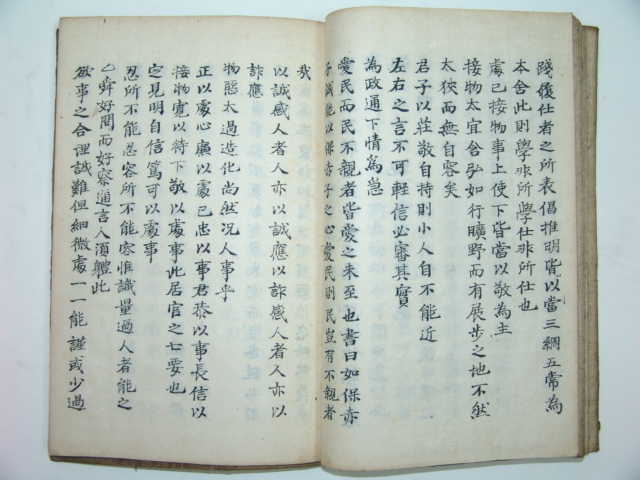 踐履仕者之所表倡推明皆以當三綱五常為
本舍此則學非所學仕非所仕也
處己接物事上使下皆當以敬為主
接物太宜含弘如行曠野而有展步之地不然
太狹而無自容矣
君子以莊敬自持則小人自不能近
左右之言不可輕信必審其實
為政通下情為急
愛民而民不親者皆愛之未至也書曰如保赤
子誠能以保赤子之心愛民則民豈有不親者
哉
以誠感人者人亦以誠應以詐感人者人亦以
詐應
物態太過造化尚然況人事乎
正以處心廉以處己忠以事君恭以事長信以
接物寬以待下敬以處事此居官之七要也
定見明自信篤可以處事
忍所不能忍容所不能容惟識量過人者能之
舜好問而好察邇言人須體此
欲事之合理誠難但細微處一一能謹或少過